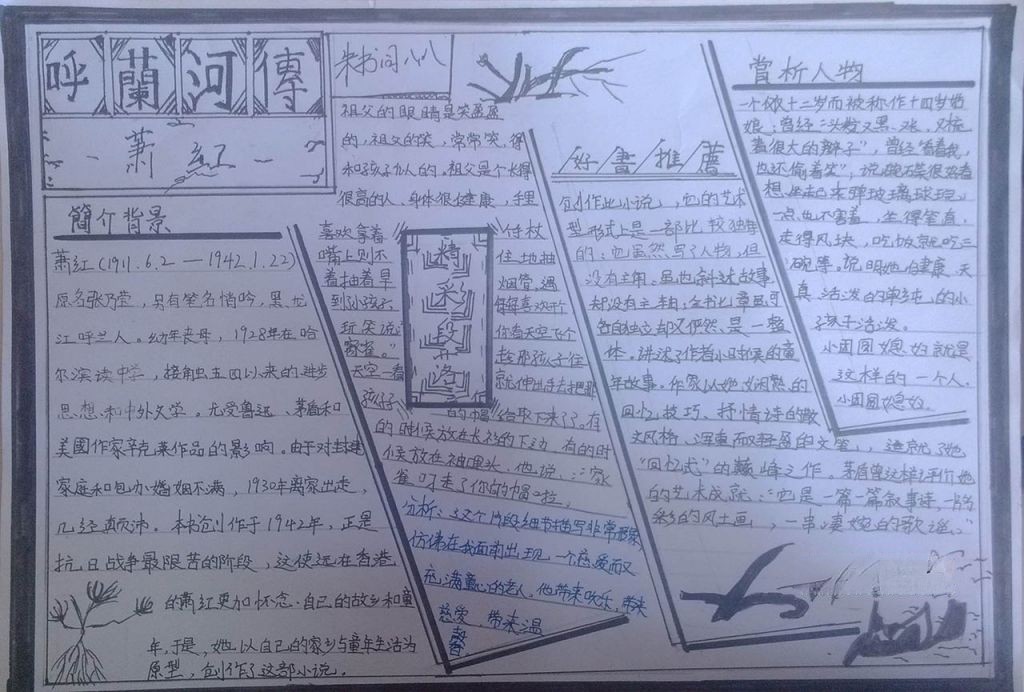 呼蘭河傳
- 萧紅 -
簡介背景
萧红(1911.6.2—1942.1.22)
原名张乃莹，另有笔名悄吟，黑龙
江呼兰人。幼年丧母，1928年在哈
尔滨读中学，接触五四以来的进步
思想和中外文学。尤受鲁迅、茅盾和
美國作家辛克莱作品的影响。由于对封建
家庭和包办婚姻不满，1930年离家出走，
几经颠沛。本书创作于1942年，正是
抗日战争最艰苦的阶段，这使远在香港
的萧红更加怀念自己的故乡和童
年，于是，她以自己的家乡与童年生活为
原型，创作了这部小说。
祖父的眼睛是笑盈盈
的，祖父的笑，常常笑得
和孩子似的。祖父是个长得
很高的人，身体很健康，手里
喜欢拿着
嘴上则不
着抽着旱
到小孩子
玩笑说
家雀。"
天空一看
孩子
精彩段洛
付杖
住地抽
烟管，遇
每每喜欢开个
你看天空飞个
趁那孩子往
就伸出手去把那
的帽给取下来了。有
的时候放在长衫的下边，有的时
候放在袖口里头。他说："家
雀叼走了你的帽啦。
分析：这个片段细节描写非常形象
仿佛在我面前出现一个慈爱而又
充满童心的老人，他带来欢乐，带来
慈爱 带来温
馨
好書推薦
创作此小说，它的艺术
型形式上是一部比较独特
的：它虽然写了人物，但
没有主角。虽也叙述故事
却没有主轴；全书七章虽可
各自独立却又俨然是一整
体。讲述了作者小时候的童
年故事。作家以她娴熟的
回忆技巧、抒情诗的散
文风格、浑重而轻盈的文笔，造就了她
"回忆式"的巅峰之作。茅盾曾这样评价她
的艺术成就："它是一篇叙事诗，一片多
彩的风土画，一串凄婉的歌谣。"
赏析人物
一个仅十二岁而被称作十四岁姑
娘；曾经"头发又黑又长，又梳
着很大的辫子"，曾经"看着我，
也还偷着笑"，说碗碴很好看
想坐起来弹玻璃球玩，
一点也不害羞，坐得笔直，
走得风快，吃饭就吃三
碗等。说明她健康、天
真、活泼的单纯的小
孩子活泼。
小团圆媳妇就是
这样的一个人。
小团圆媳妇